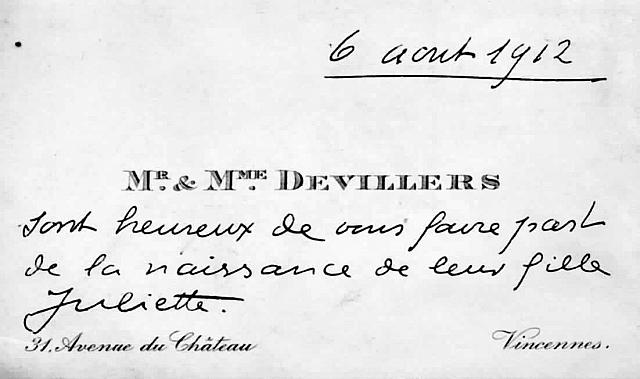 6 aout 1912
MR. & MME. DEVILLERS
sont heureux de vous faire part
de la naissance de leur fille
Juliette.
31. Avenue du Château Vincennes.